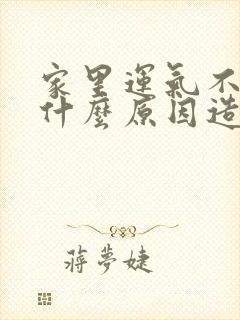 家里運氣不
什麼原因造
蔣夢婕